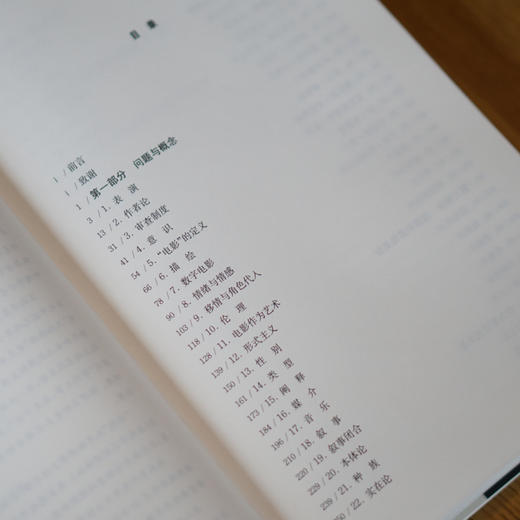 目 录
1 / 前言
1 / 致谢
1 / 第一部分 问题与概念
3 / 1. 表 演
13 / 2. 作者论
31 / 3. 审查制度
41 / 4. 意 识
54 / 5. “电影”的定义
66 / 6. 描 绘
78 / 7. 数字电影
90 / 8. 情绪与情感
103 / 9. 移情与角色代入
118 / 10. 伦 理
128 / 11. 电影作为艺术
139 / 12. 形式主义
150 / 13. 性 别
161 / 14. 类 型
173 / 15. 阐 释
184 / 16. 媒 介
196 / 17. 音 乐
210 / 18. 叙 事
220 / 19. 叙事闭合
229 / 20. 本体论
239 / 21. 种 族
250 / 22. 实在论